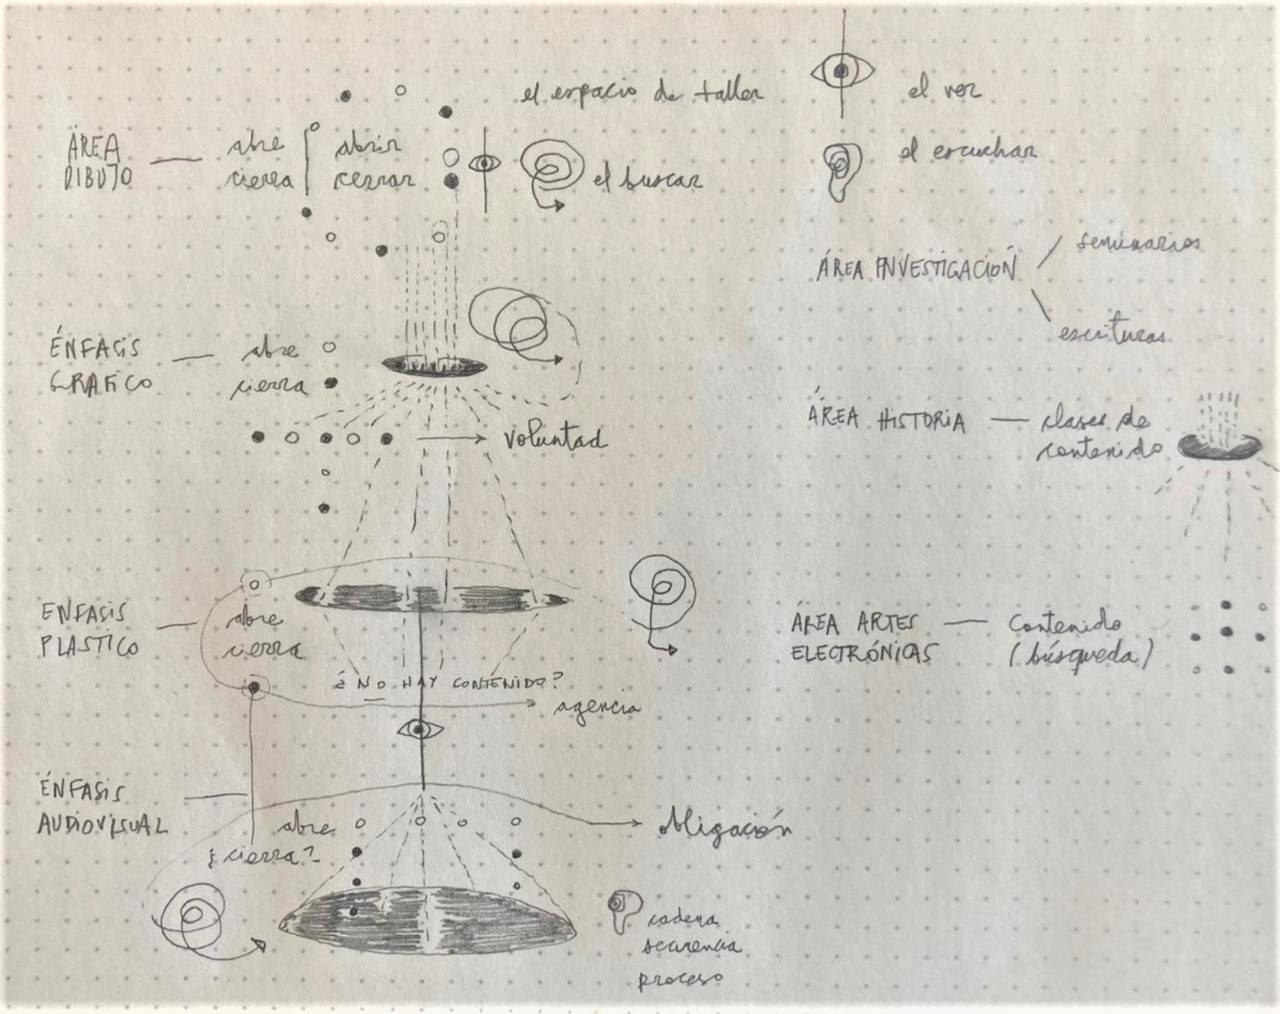 el espacio de taller
ÁREA DIBUJO
abre
cierra
abrir
cerrar
el buscar
ÉNFASIS
GRAFICO
abre
cierra
voluntad
ENFASIS
PLASTICO
abre
cierra
¿NO HAY CONTENIDO?
agencia
ÉNFASIS
AUDIOVISUAL
abre
¿cierra?
obligación
cadena
secuencia
proceso
el ver
el escuchar
ÁREA INVESTIGACIÓN
seminarios
escrituras
ÁREA HISTORIA
clases de
contenido
ÁREA ARTES
ELECTRÓNICAS
contenido
(búsqueda)